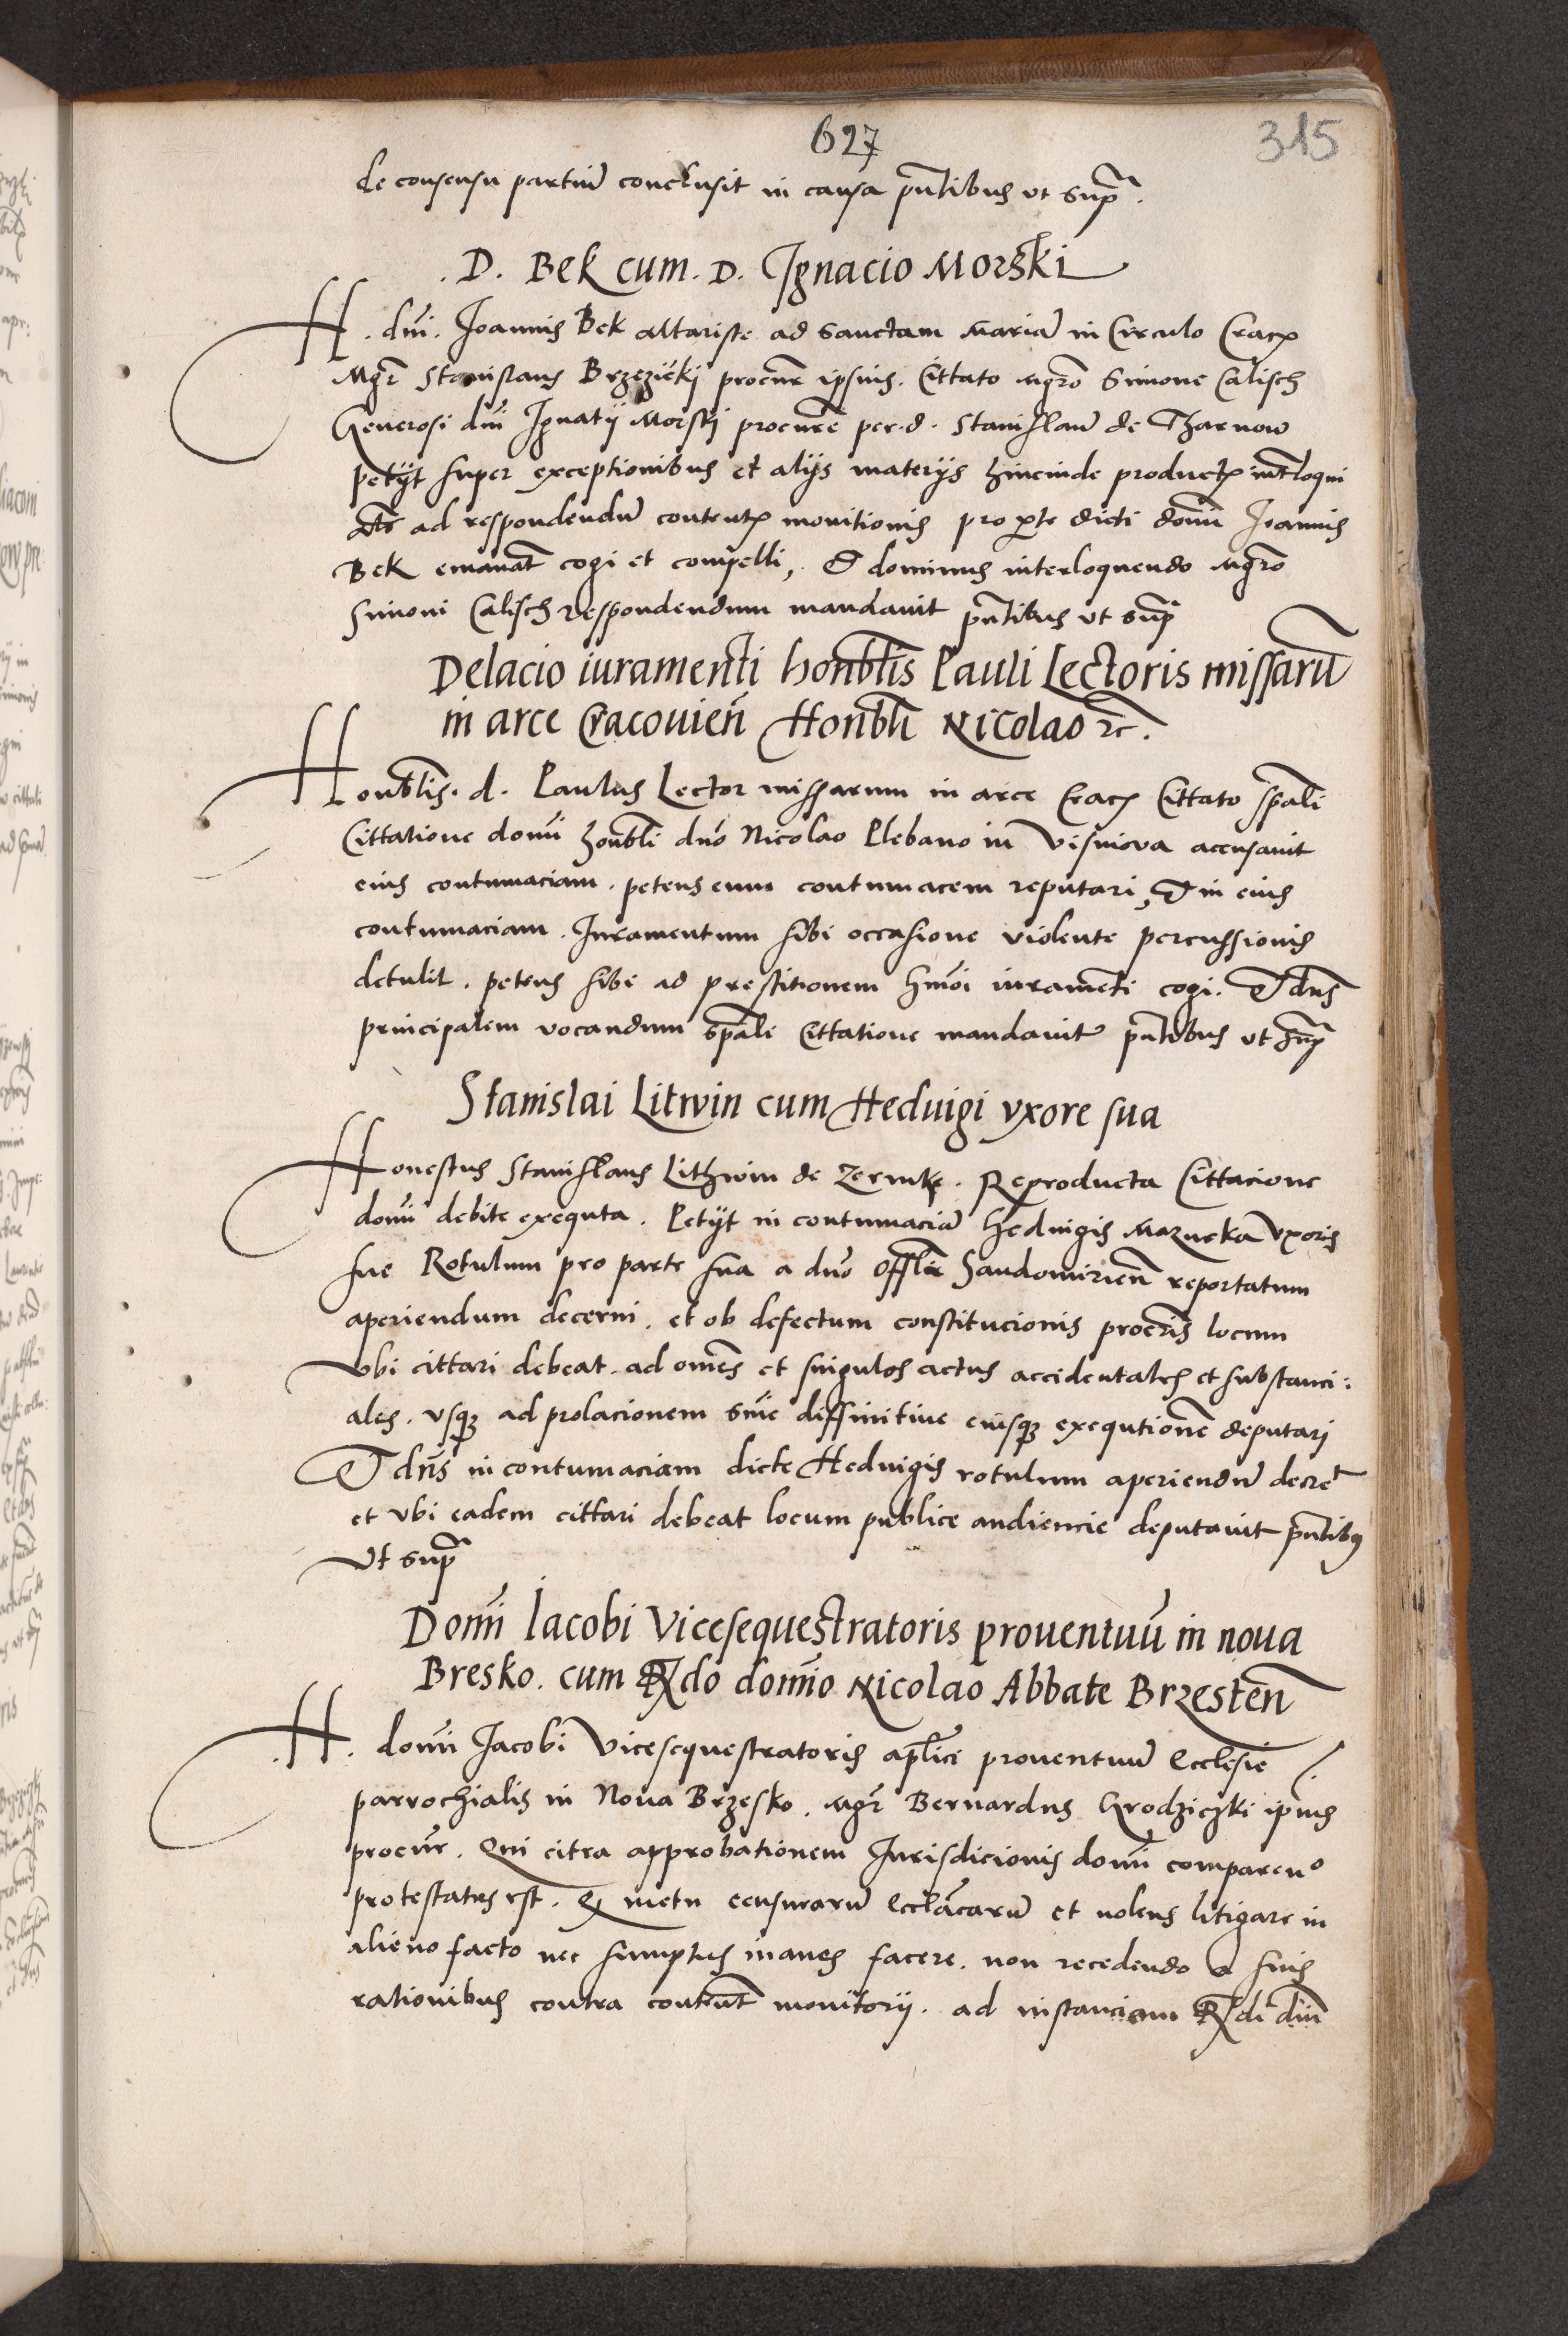 627
315
de consensu partiū conclusit in causa pn̄tibus ut supr̄.
. D. Bek cum. D. Ignacio Morski
H. dn̄i. Joannis Bek altariste ad Sanctam Mariā in Circulo Crac̄
Mgr̄ Stanislaus Brzeziczkj procur̄ ipsius. Cittato Mgr̄o Simone Calisch
Generosi dn̄i Ignatij Morskj procur̄e per. d. Stanislaū de Tharnow
petijt super exceptionibus et alijs materijs hincinde product̄ int̄loqui
ad respondendū content̄ monitionis pro pte dicti domī Joannis
Bek emanat̄ cogi et compelli, Et dominus interloquendo Mgr̄o
Simoni Calisch respondendum mandauit pn̄tibus ut supr̄
Delacio iuramenti hon̄blis Pauli Lectoris missarū
in arce Cracouien̄ Hon̄bli Nicolao rc̄.
Hon̄blis. d. Paulus Lector missarum in arce Crac̄ Cittato sp̄ali
Cittatione domī hon̄bli dn̄o Nicolao Plebano in Visniova accusauit
eius contumaciam. petens eum contumacem reputari, Et in eius
contumaciam. Iuramentum sibi occasione violente percussionis
detulit. petens sibi ad prestitionem hm̄oi iuramenti cogi. Et dn̄s
principalem vocandum sp̄ali Cittatione mandauit pn̄tibus ut supr̄
Stanislai Litwin cum Heduigi uxore sua
Honestus Stanislaus Lithwin de . Reproducta Cittacione
domī debite exequta. Petijt in contumaciā Heduigis Mazurka Uxoris
sue Rotulum pro parte sua a dn̄o Offl̄i Sandomirien̄ reportatum
aperiendum decerni. et ob defectum constitucionis procr̄is locum
ubi cittari debeat. ad om̄es et singulos actus accidentales et substanci:
ales. usq3 ad prolacionem sn̄ie diffinitiue eiusq3 exequtionē deputari
Et dn̄s in contumaciam dicte Heduigis rotulum aperiendū decre᷑t
et ubi eadem cittari debeat locum publice audiencie deputauit pn̄tib9
Ut supr̄
Domī Iacobi Vicesequestratoris prouentuū in noua
Bresko. cum Rdo domīo Nicolao Abbate Brzesten̄
H. domī Jacobi Vicesequestratoris apl̄ici prouentuum Ecclesie
parrochialis in Noua Brzesko. Mgr̄ Bernardus Grodziczki ipius
procur̄. Qui citra approbationem Iurisdicionis domī comparendo
protestatus est. Q metu censurarū Eccl̄acarū et nolens litigare in
alieno facto nec sumptus inanes facere. non recedendo a suis
rationibus contra content̄ monitorij. ad instanciam Rdi dn̄i